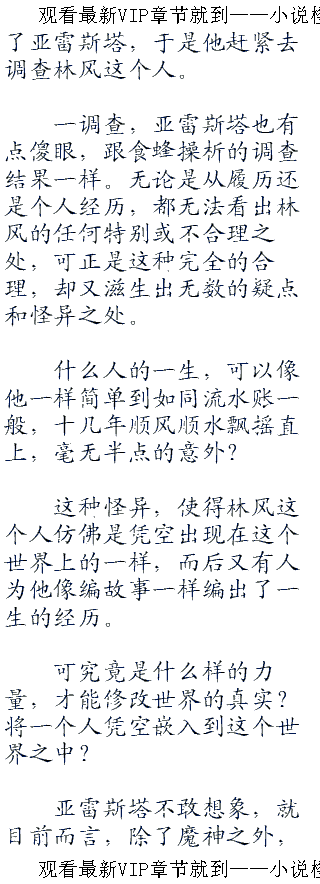 观看最新VIP章节就到——小说
了亚雷斯塔，于是他赶紧去
调查林风这个人。
一调查，亚雷斯塔也有
点傻眼，跟食蜂操祈的调查
结果一样。无论是从履历还
是个人经历，都无法看出林
风的任何特别或不合理之
处，可正是这种完全的合
理，却又滋生出无数的疑点
和怪异之处。
什么人的一生，可以像
他一样简单到如同流水账一
般，十几年顺风顺水飘摇直
上，毫无半点的意外？
这种怪异，使得林风这
个人仿佛是凭空出现在这个
世界上的一样，而后又有人
为他像编故事一样编出了一
生的经历。
可究竟是什么样的力
量，才能修改世界的真实？
将一个人凭空嵌入到这个世
界之中？
亚雷斯塔不敢想象，就
目前而言，除了魔神之外，
观看最新VIP章节就到——小说